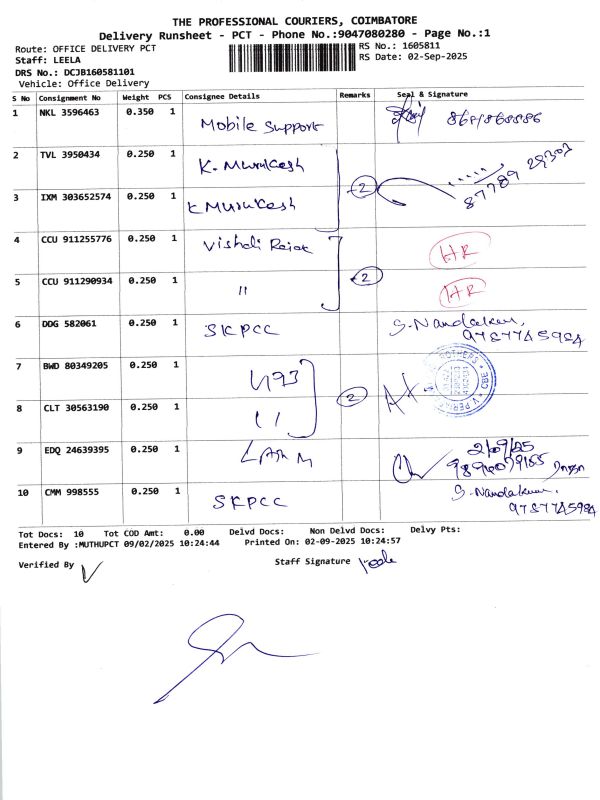 THE PROFESSIONAL COURIERS, COIMBATORE
Delivery Runsheet - PCT - Phone No.:9047080280 - Page No.:1
Route: OFFICE DELIVERY PCT RS No.: 1605811
Staff: LEELA RS Date: 02-Sep-2025
DRS No.: DCJB160581101
Vehicle: Office Delivery
S No Consignment No Weight PCS Consignee Details Remarks Seal & Signature
1 NKL 3596463 0.350 1 Mobile Support
2 TVL 3950434 0.250 1 K. Murukesh
3 IXM 303652574 0.250 1 K Murukesh 2
4 CCU 911255776 0.250 1 HR
5 CCU 911290934 0.250 1 " 2 HR
6 DDG 582061 0.250 1 SKPCC S. Nandakumar,
7 BWD 80349205 0.250 1
8 CLT 30563190 0.250 1 2
9 EDQ 24639395 0.250 1 2/09/25
10 CMM 998555 0.250 1 SKPCC S. Nandakumar,
Tot Docs: 10 Tot COD Amt: 0.00 Delvd Docs: Non Delvd Docs: Delvy Pts:
Entered By :MUTHUPCT 09/02/2025 10:24:44 Printed On: 02-09-2025 10:24:57
Verified By Staff Signature Leela